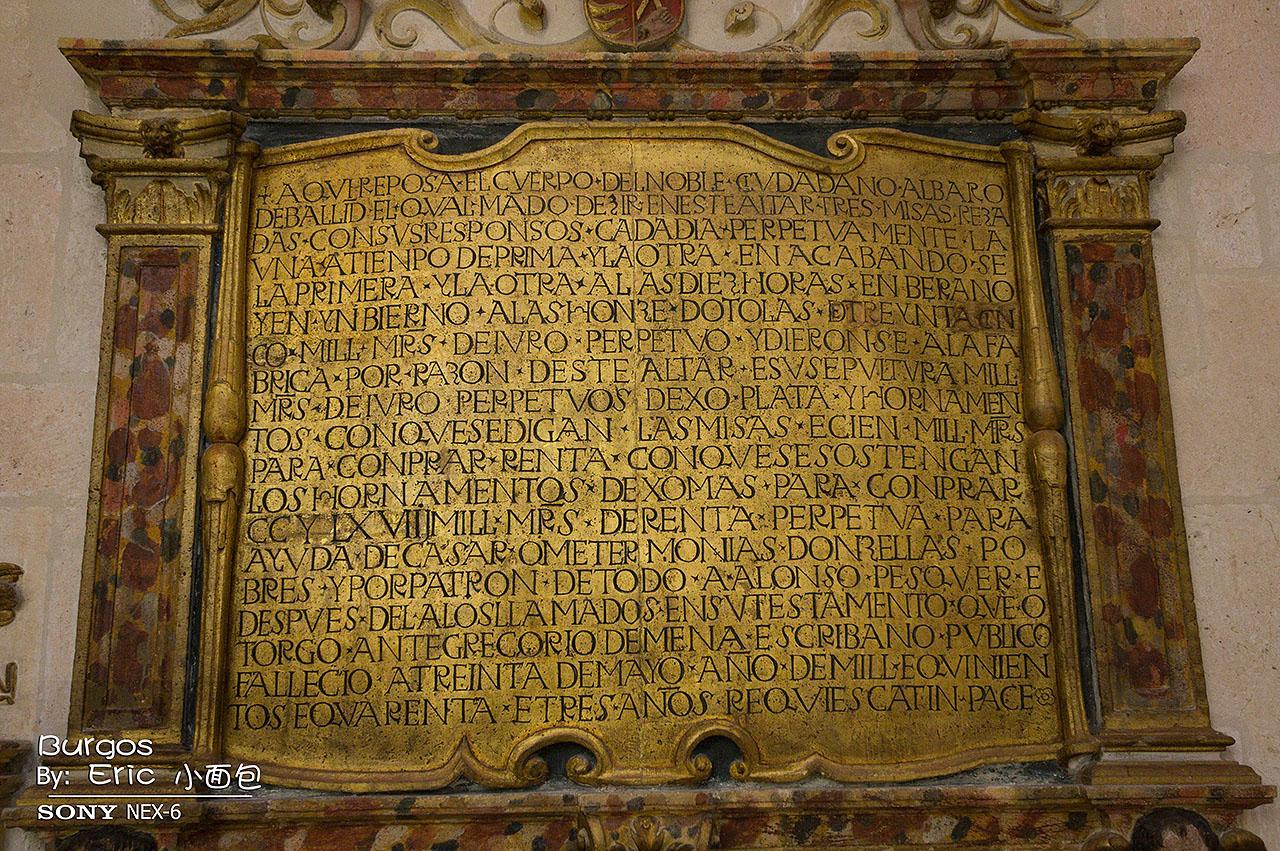 +AQVI·REPOSA·EL·CVERPO·DEL·NOBLE·CIVDADANO·ALBARO
DEBALLID·EL·QVAL·MADO·DEZIR·EN·ESTE·ALTAR·TRES·MISAS·REZA
DAS·CON·SVS·RESPONSOS·CADA·DIA·PERPETVAMENTE·LA
VNA·A·TIENPO·DE·PRIMA·Y·LA·OTRA·EN·ACABANDO·SE
LA·PRIMERA·Y·LA·OTRA·A·LAS·DIEZ·HORAS·EN·BERANO
Y·EN·YNBIERNO·A·LAS·HONZE·DOTOLAS·DTREYNTA·CIN
CO·MILL·MRS·DE·IVRO·PERPETVO·Y·DIERON·SE·A·LA·FA
BRICA·POR·RAZON·DESTE·ALTAR·E·SV·SEPVLTVRA·MILL
MRS·DE·IVRO·PERPETVOS·DEXO·PLATA·Y·HORNAMEN
TOS·CON·QVE·SE·DIGAN·LAS·MISAS·E·CIEN·MILL·MRS
PARA·CONPRAR·RENTA·CON·QVE·SE·SOSTENGAN
LOS·HORNAMENTOS·DEXO·MAS·PARA·CONPRAR
CCY·LXVIII·MILL·MRS·DE·RENTA·PERPETVA·PARA
AYVDA·DE·CASAR·O·METER·MONIAS·DONZELLAS·PO
BRES·Y·POR·PATRON·DE·TODO·A·ALONSO·PESQVER·E
DESPVES·DEL·A·LOS·LLAMADOS·EN·SV·TESTAMENTO·QVE·O
TORGO·ANTE·GREGORIO·DE·MENA·ESCRIBANO·PVBLICO
FALLECIO·A·TREINTA·DE·MAYO·AÑO·DE·MILL·E·QVINIEN
TOS·E·QVARENTA·E·TRES·AÑOS·REQVIESCAT·IN·PACE
Burgos
By: Eric 小面包
SONY NEX-6